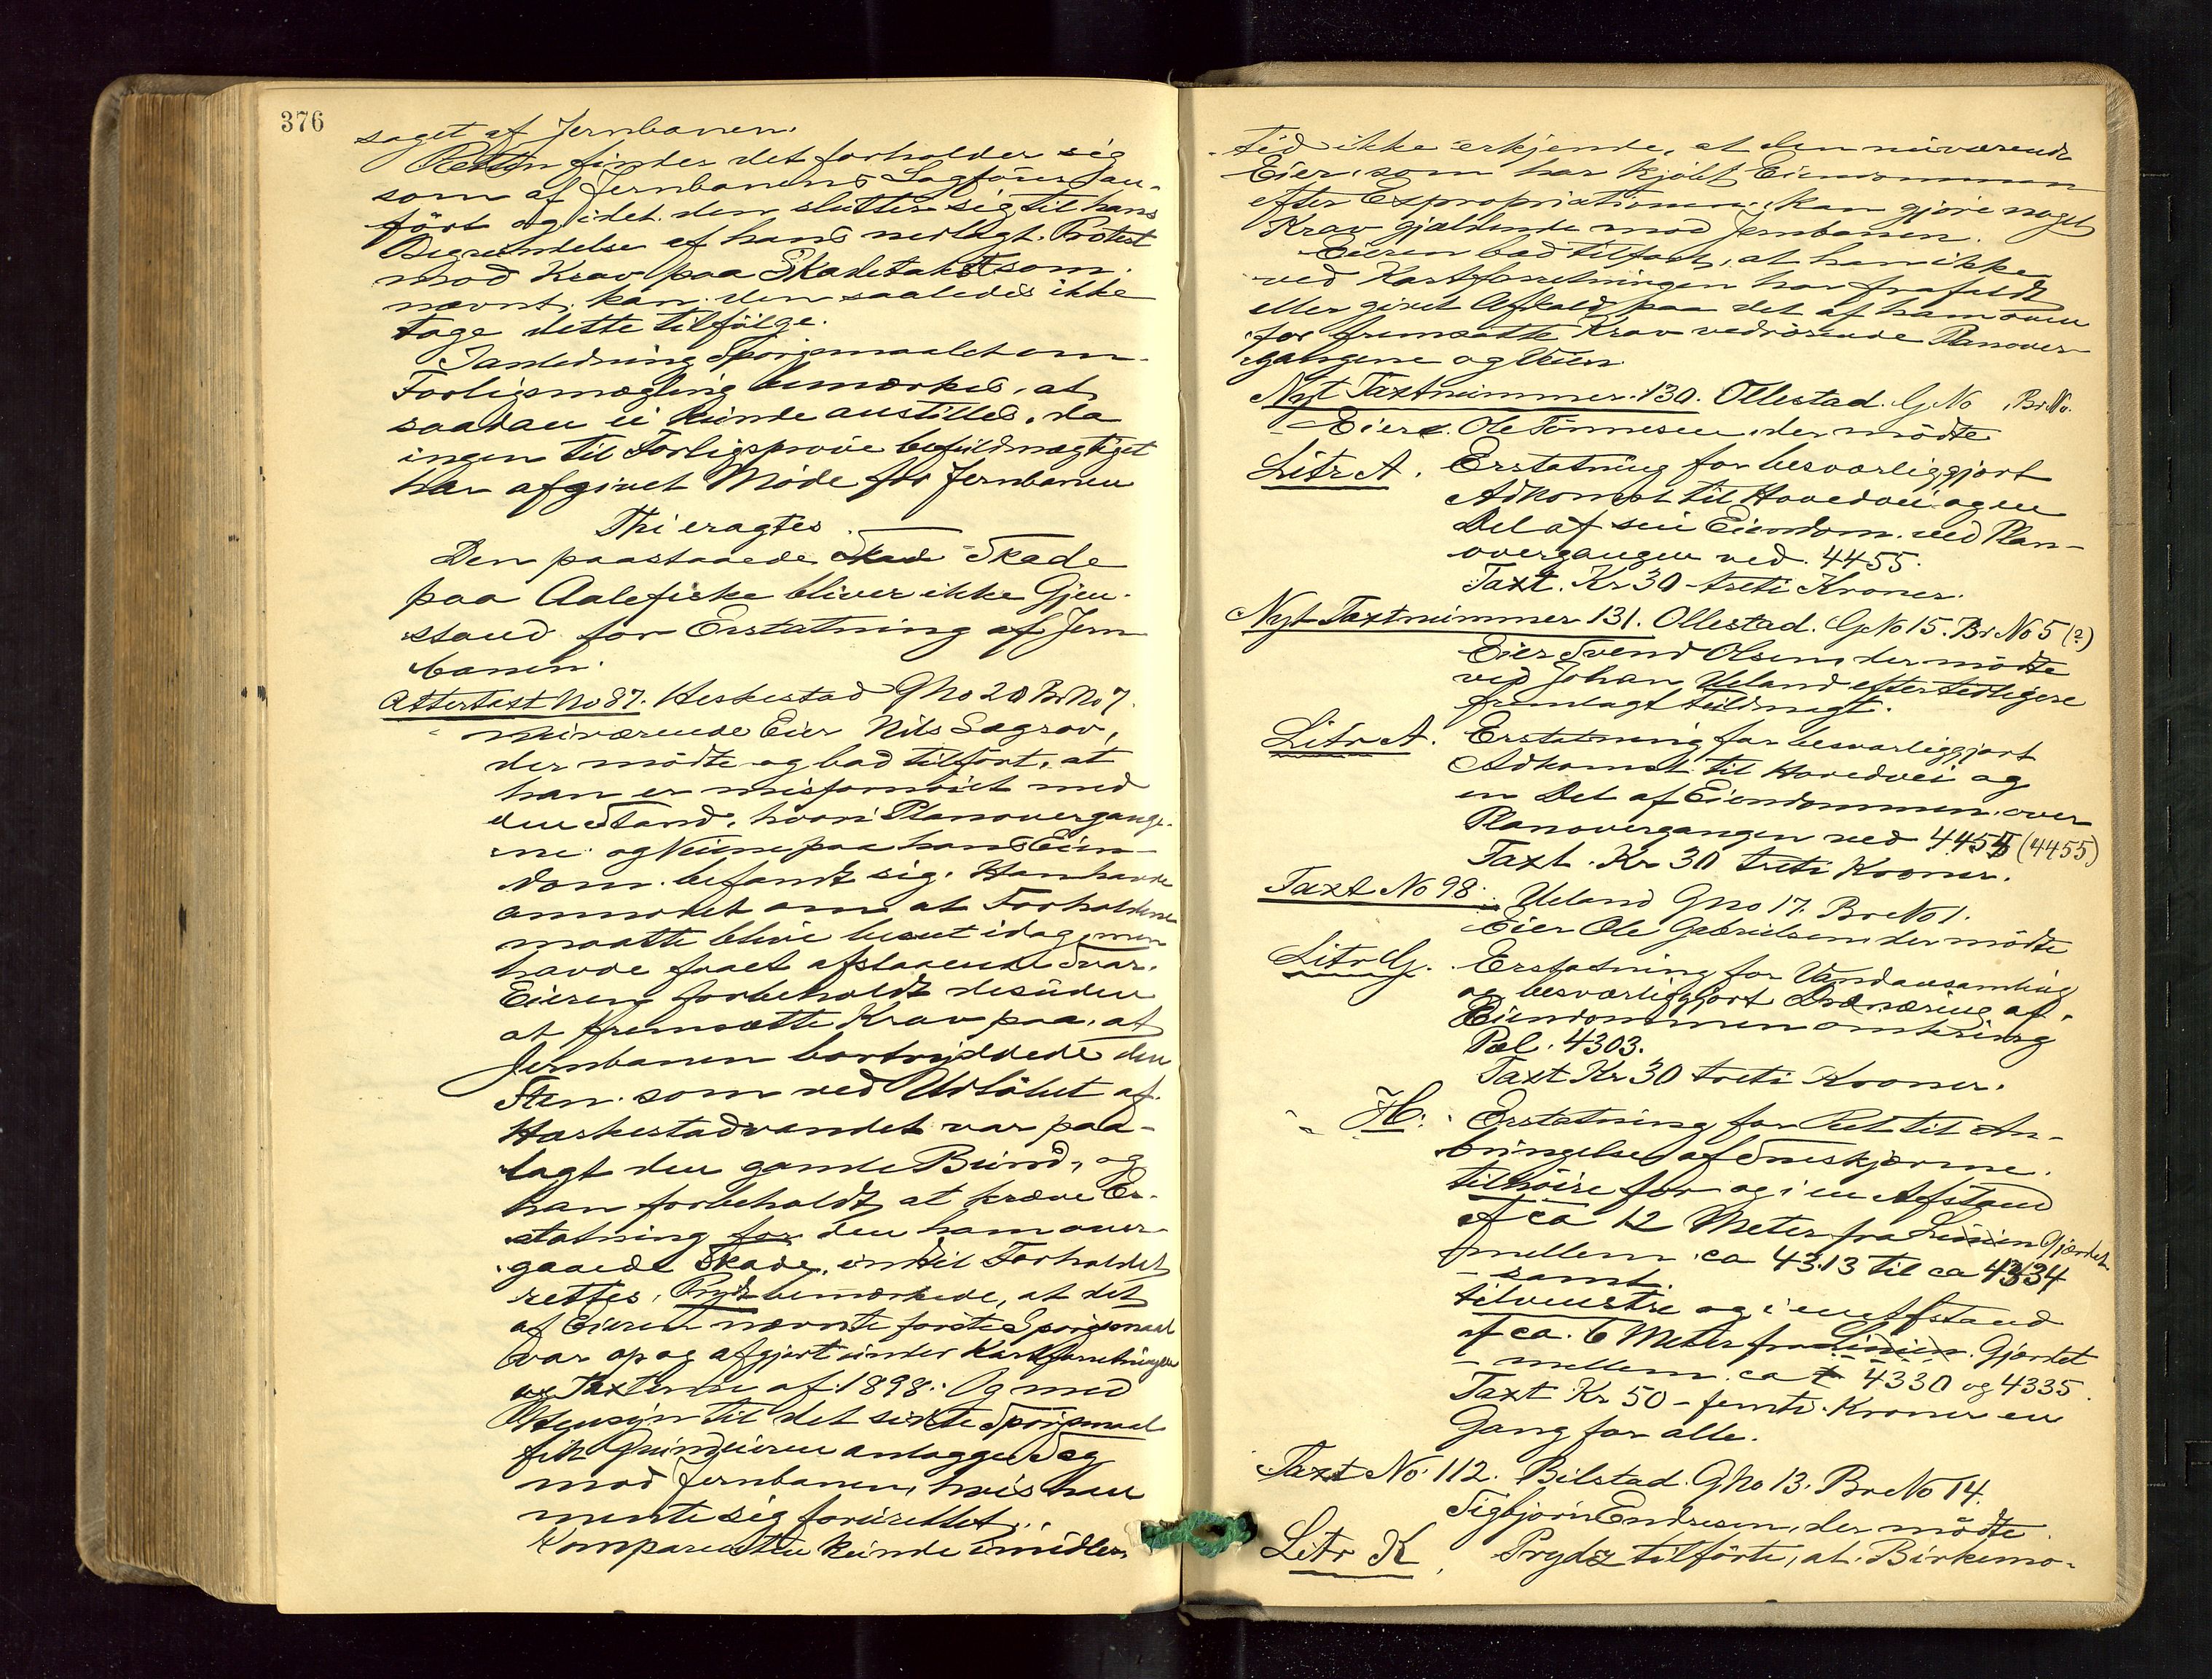 376
saget af Jernbanen.
Retten finder det forholder sig
som af Jernbanens Sagfører an-
ført og idet den slutter sig til hans
Begrundelse af hans nedlagt Protest
mod Krav paa Skadetakst som
nævnt, kan den saaledes ikke
tage dette tilfølge.
I anledning Spørgsmaalet om
Forligsmægling bemærkes, at
saadan ei kunde anstilles, da
ingen til Forligsprøve befuldmægtiget
har afgivet Møde for Jernbanen
Thi eragtes
Den paastaaede Skad Skade
paa Aalefiske bliver ikke Gjen-
stand for Erstatning af Jern
banen.
Attertaxt No 87. Heskestad GNo 20 BrNo 7.
nuværende Eier Nils Sagrov,
der mødte og bad tilført, at
han er misfornøiet med
den Stand, hvori Planovergange-
ne og Veiene paa hans Eien-
dom befandt sig. Han havde
anmodet om at Forholdene
maatte blive beseet idag, men
havde faaet afslaaende Svar.
Eieren forbeholdt desuden
at fremsætte Krav paa, at
Jernbanen bortryddede den
Sten som ved Udløbet af
Heskestadvandet var paa-
lagt den gamle Bund, og
han forbeholdt at kræve Er-
statning for den ham over-
gaaede Skade, indtil Forholdet
rettes. Prydz bemærkede, at det
af Eieren nævnte første Spørgsmaal
var op og afgjort under Kartforretningen
og Taxterne af 1898. Og med
Hensyn til det sidste Spørgsmaal
fik Grundeieren anlægge Sag
mod Jernbanen, hvis han
mente sig forurettet.
Komparenten kunde imidler
tid ikke erkjende, at den nuværende
Eier, som har kjøbt Eiendommen
efter Expropriationen, kan gjøre noget
Krav gjældende mod Jernbanen.
Eieren bad tilført, at han ikke
ved Kartforretningen har frafaldt
eller givet Afkald paa det af ham oven
for fremsatte Krav vedrørende Planover-
gangene og Veien
Nyt Taxtnummer 130. Ollestad. GNo , BrNo.
Eier. Ole Tønnesen, der mødte
Litr A. Erstatning for besværliggjort
Adkomst til Hovedvei og en
Del af sin Eiendom ved Plan-
overgangen ved 4455.
Taxt. Kr 30 - treti Kroner.
Nyt Taxtnummer 131. Ollestad. GNo 15. BrNo 5 (?)
Eier Svend Olsen, der mødte
ved Johan Ueland efter tidligere
fremlagt Fuldmagt.
Litr A. Erstatning for besværliggjort
Adkomst til Hovedvei og
en Del af Eiendommen over
Planovergangen ved 4455 (4455)
Taxt. Kr 30 treti Kroner.
Taxt No 98. Ueland GNo 17. BrNo 1.
Eier Ole Gabrielsen, der mødte
Litr G. Erstatning for Vandansamling
og besværliggjort Drænering af
Eiendommen omkring
Pæl. 4303.
Taxt Kr 30 treti Kroner.
" H. Erstatning for Ret til An-
bringelse af Sneskjærme
tilhøire for og i en Afstand
af ca 12 Meter fra Linien Gjærdet
mellem ca 4313 til ca 4334
samt
tilvenstre og i en Afstand
af ca. 6 Meter fra Linien Gjærdet
mellem ca 4330 og 4335.
Taxt Kr 50 - femti Kroner en
Gang for alle.
Taxt No 112. Bilstad. GNo 13. BrNo 14.
Sigbjørn Endresen, der mødte
Litr K. Prydz tilførte, at Birkemo-